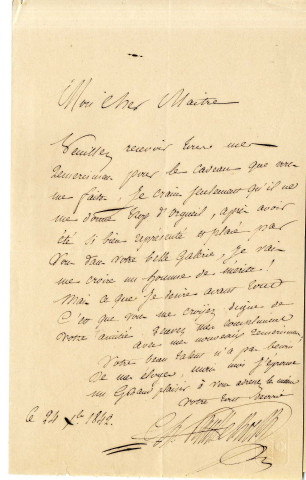 Mon cher Maitre
Veuillez recevoir tous mes
remerciemens pour le cadeau que vous
me faites. Je crains seulement qu'il ne
me donne trop d'orgueil, après avoir
été si bien représenté et placé par
vous dans votre belle Galerie, je vais
me croire un homme de mérite!
Mais ce que je désire avant tout
C'est que vous me croyez digne de
votre amitié. Recevez mes complimens
avec mes nouveaux remerciemens,
Votre beau talent n'a pas besoin
de mes éloges, mais moi j'éprouve
un grand plaisir à vous adresser le mien
votre tout dévoué
le 24 Xbre 1842.